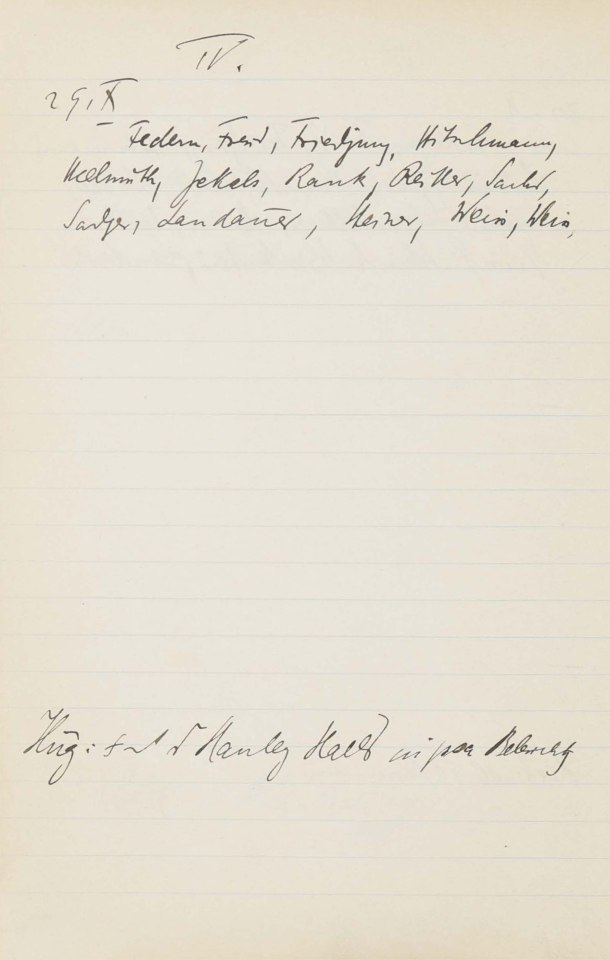 IV.
29. X
Federn, Freud, Friedjung, Hitschmann,
Hellmuth, Jekels, Rank, Reitler, Sachs,
Sadger, Landauer, Steiner, Weiss, Weiss,
Hug: Stanley Halls in psa